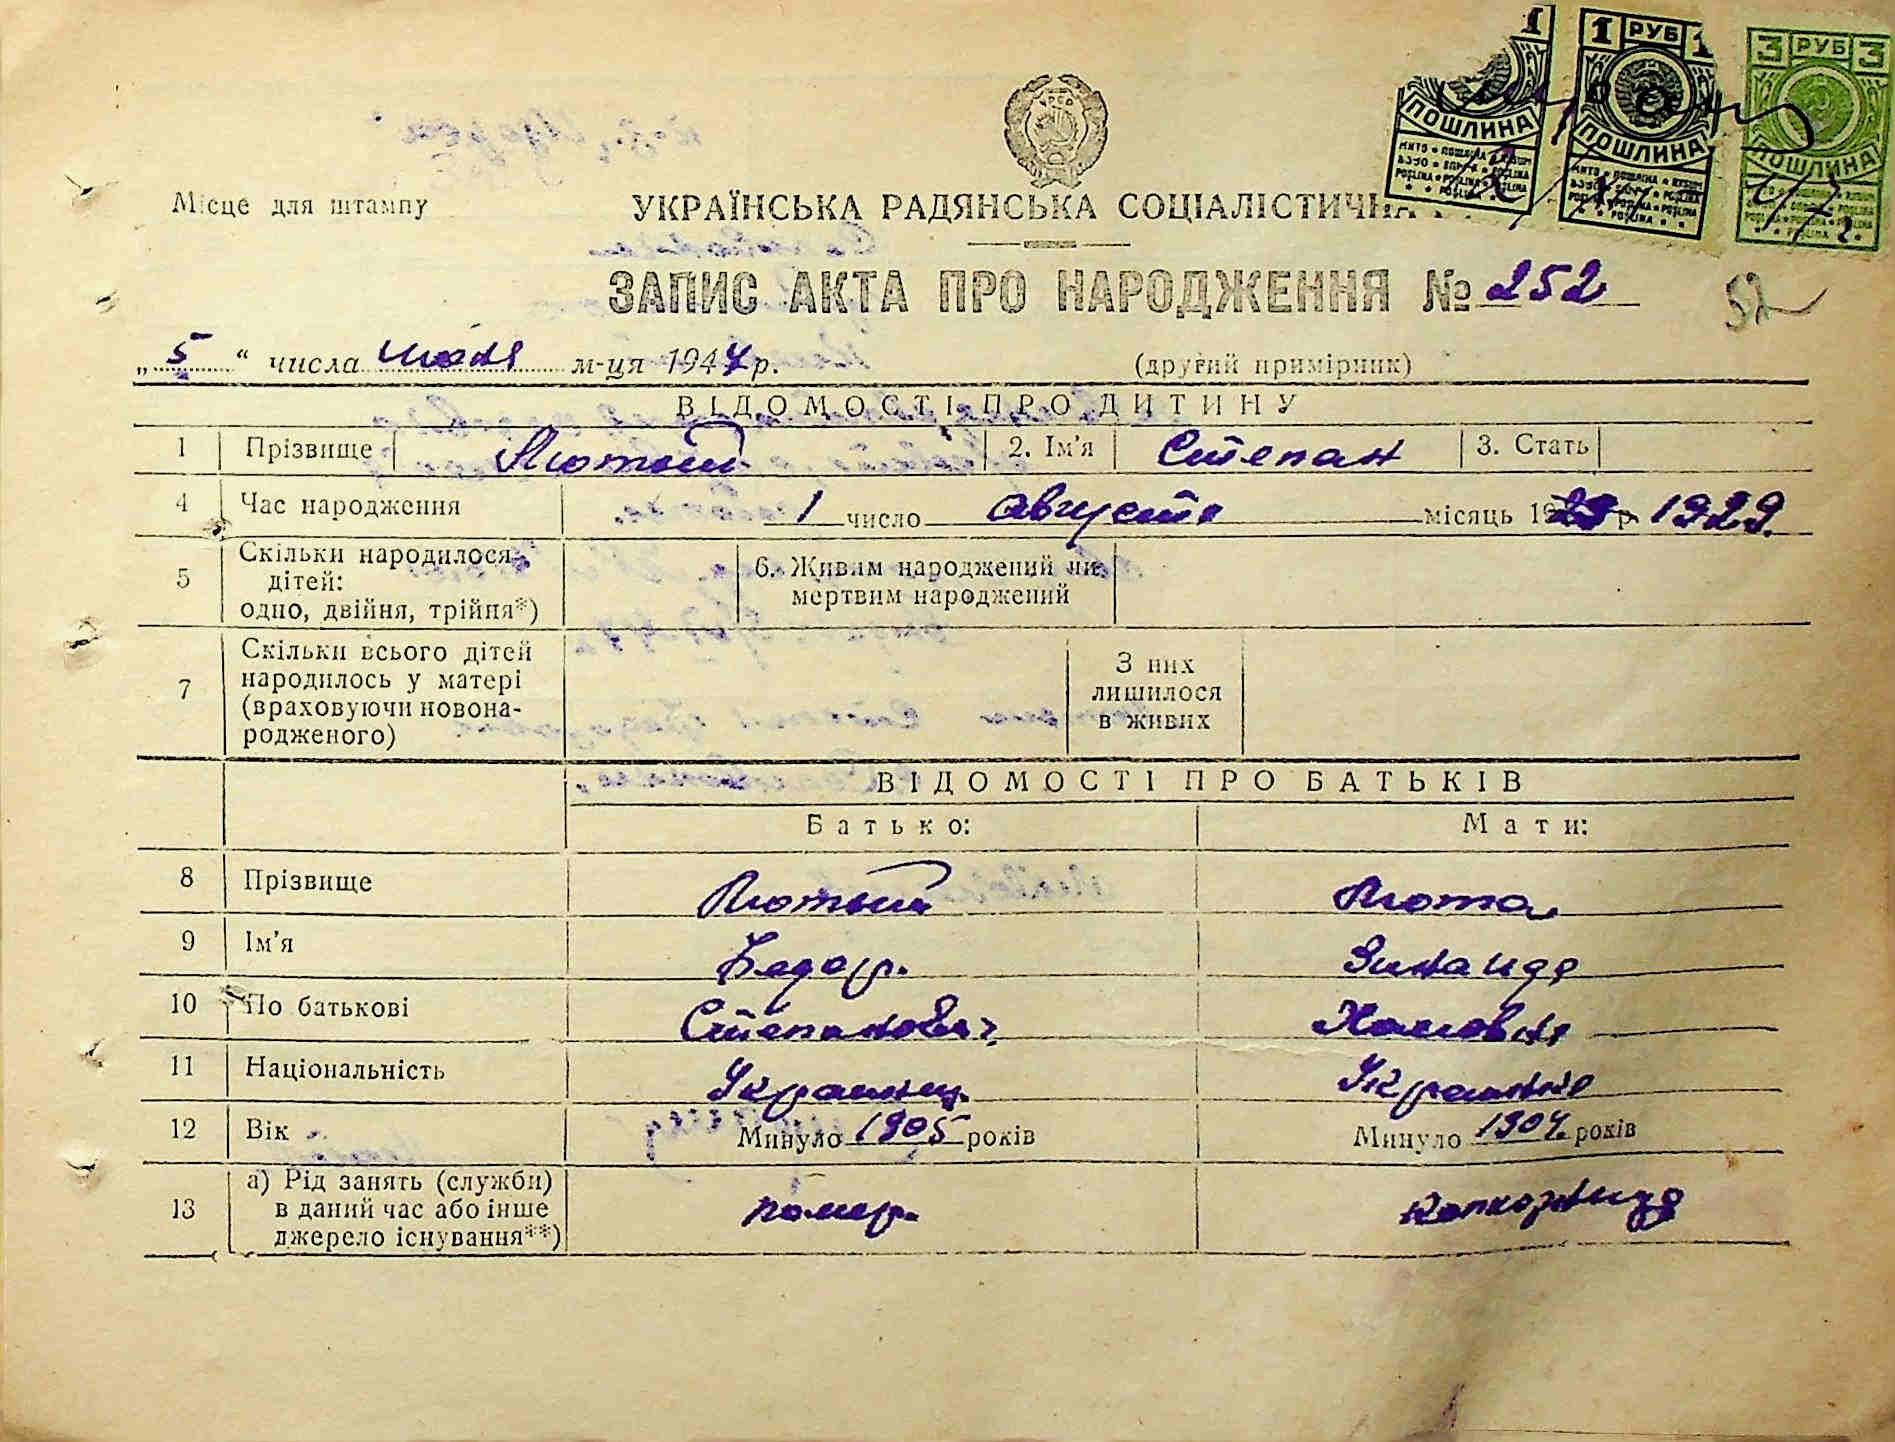 1
1 РУБ 1
3 РУБ 3
ПОШЛИНА
ПОШЛИНА
ПОШЛИНА
Місце для штампу
УКРАЇНСЬКА РАДЯНСЬКА СОЦІАЛІСТИЧНА
ЗАПИС АКТА ПРО НАРОДЖЕННЯ № 252
52
„ 5 “ числа июля м-ця 1947 р. (другий примірник)
ВІДОМОСТІ ПРО ДИТИНУ
1 Прізвище Лютый 2. Ім'я Степан 3. Стать
4 Час народження 1 число августа місяць 19 р. 1929.
5 Скільки народилося дітей: одно, двійня, трійня*) 6. Живим народжений чи мертвим народжений
7 Скільки всього дітей народилось у матері (враховуючи новонародженого) З них лишилося в живих
ВІДОМОСТІ ПРО БАТЬКІВ
Батько: Мати:
8 Прізвище Лютый Люта
9 Ім'я Федор. Зинаида
10 По батькові Степанович Хомовна
11 Національність Украинец Украинка
12 Вік Минуло 1905 років Минуло 1904. років
13 а) Рід занять (служби) в даний час або інше джерело існування**) помер. колхозница